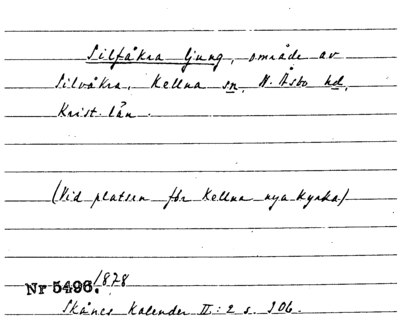 Silfåkra ljung, område av
Silvåkra, Kellna sn, N. Åsbo hd,
Krist. län.
(Vid platsen för Kellna nya kyrka)
Nr 5496. 1878
Skånes Kalender II: 2 s. 306.